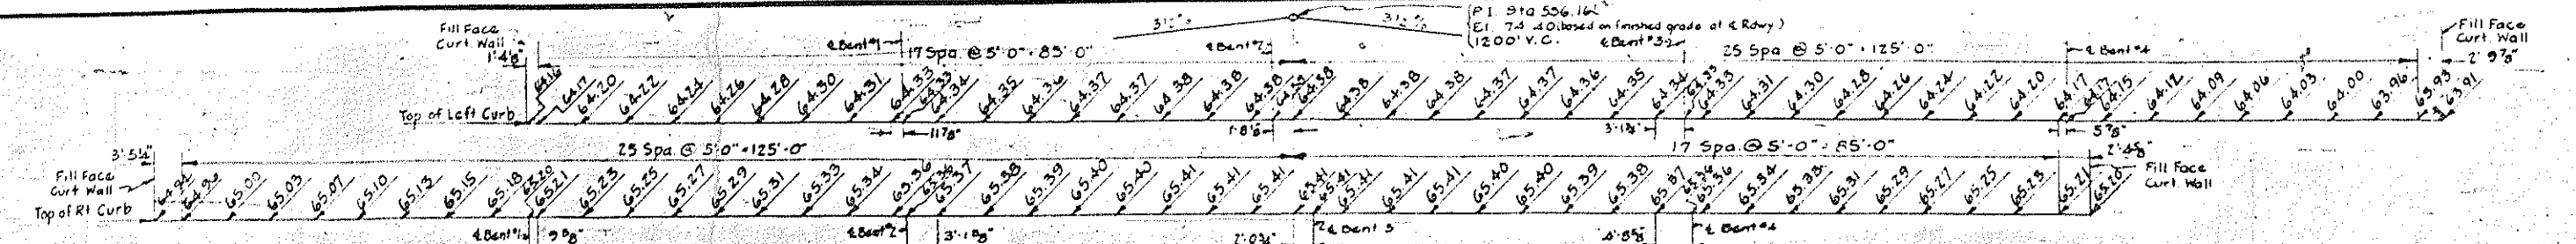 Fill Face
Curt. Wall
1'-4⅛"
17 Spa. @ 5'-0" = 85'-0"
℄ Bent #1
℄ Bent #2
P.I. Sta 556.16
El. 74.40 (based on finished grade at ℄ Rdwy)
1200' V.C.
℄ Bent #3
25 Spa @ 5'-0" = 125'-0"
℄ Bent #4
Fill Face
Curt. Wall
2'-9⅞"
Top of Left Curb
64.16 64.17 64.20 64.22 64.24 64.26 64.28 64.30 64.31 64.33 64.33 64.34 64.35 64.36 64.37 64.37 64.38 64.38 64.38 64.38 64.38 64.38 64.38 64.38 64.37 64.37 64.36 64.35 64.34 64.33 64.33 64.31 64.30 64.28 64.26 64.24 64.22 64.20 64.17 64.17 64.15 64.12 64.09 64.06 64.03 64.00 63.96 63.93 63.91
11⅞"
1'-8⅛"
3'-1¾"
5⅞"
3'-5¼"
25 Spa. @ 5'-0" = 125'-0"
17 Spa. @ 5'-0" = 85'-0"
2'-4⅝"
Fill Face
Curt Wall
Fill Face
Curt. Wall
Top of Rt Curb
64.94 64.96 65.00 65.03 65.07 65.10 65.13 65.15 65.18 65.20 65.21 65.23 65.25 65.27 65.29 65.31 65.33 65.34 65.36 65.36 65.37 65.38 65.39 65.40 65.40 65.41 65.41 65.41 65.41 65.41 65.41 65.41 65.41 65.40 65.40 65.39 65.38 65.37 65.36 65.36 65.34 65.33 65.31 65.29 65.27 65.25 65.23 65.21 65.20
℄ Bent #1
9⅝"
℄ Bent #2
3'-1⅝"
2'-0¾"
℄ Bent 3
4'-8⅝"
℄ Bent #4